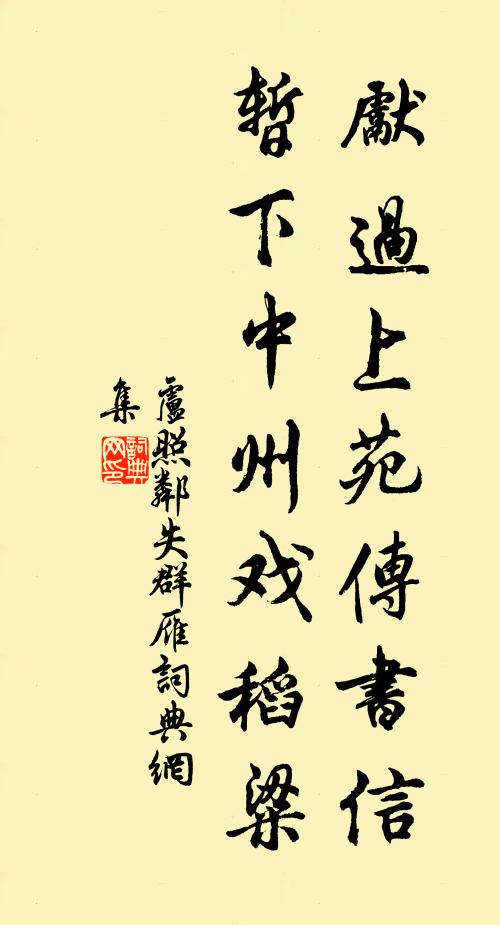 獻過上苑傳書信
暫下中州戏稻粱
盧照鄰失群雁詞典網
集
詞典網印